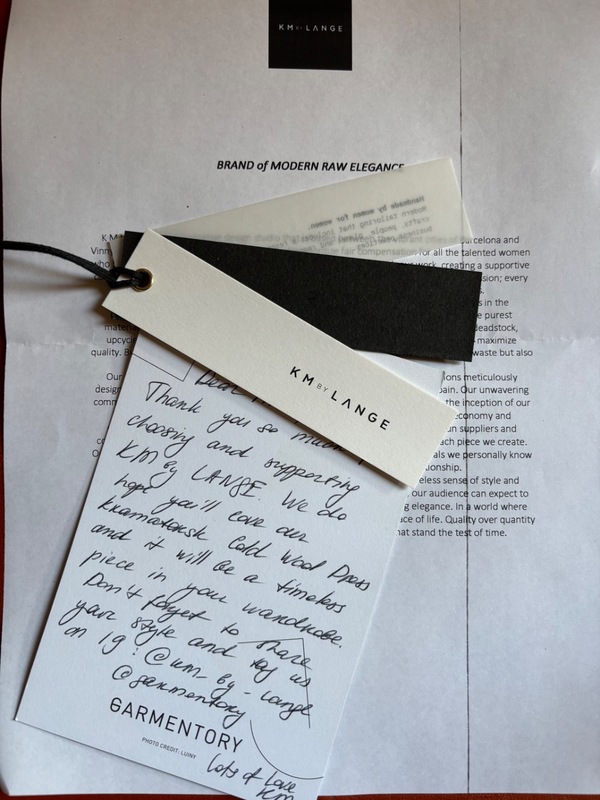 KM BY LANGE
BRAND of MODERN RAW ELEGANCE
Handmade by women for women.
Modern tailoring that includes
crafts, people, planet
business
K M
design studio that
vibrant cities of Barcelona and
Vinn
fair compensation for all the talented women
who
work, creating a supportive
ssion; every
s.
s in the
e purest
mate
deadstock,
upcycl
maximize
quality. B
waste but also
Our
ions meticulously
desig
pain. Our unwavering
comm
the inception of our
economy and
n suppliers and
co
each piece we create.
O
als we personally know
onship.
eless sense of style and
, our audience can expect to
g elegance. In a world where
ce of life. Quality over quantity
hat stand the test of time.
KM BY LANGE
Dear
Thank you so much
choosing and supporting
KM by LANGE. We do
hope you'll love our
Kramatorsk Cold Wool Dress
and it will be a timeless
piece in your wardrobe.
Don't forget to share
your style and tag us
on ig: @km_by_lange
@garmentory
GARMENTORY
PHOTO CREDIT: LUINY
Lots of Love
KM